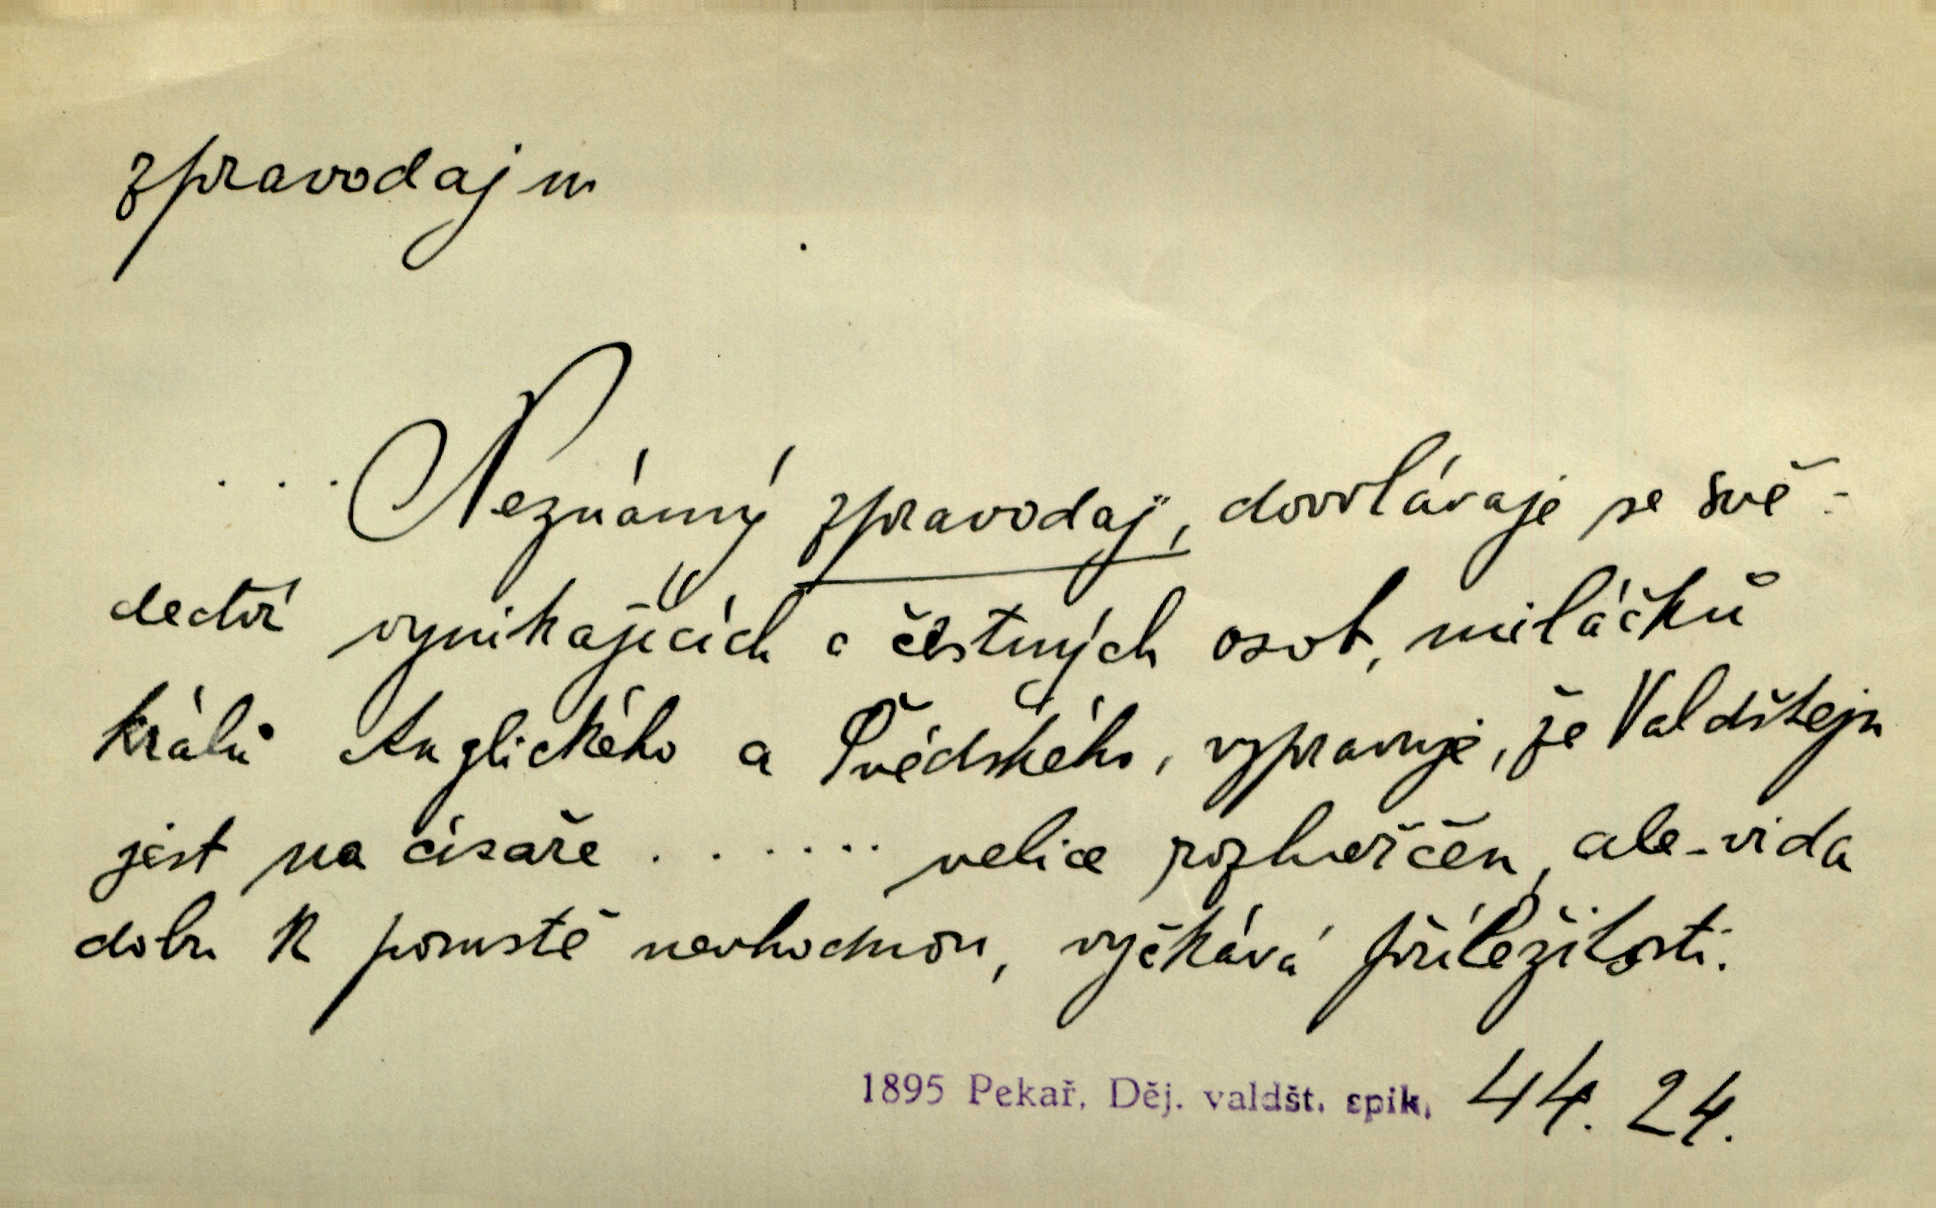 zpravodaj m
. . . Neznámý zpravodaj, dovolávaje se svě-
dectví vynikajících a čestných osob, miláčků
králů Anglického a Švédského, vypravuje, že Valdštejn
jest na císaře . . . . . . velice rozhořčen, ale - vida
dobu k pomstě nevhodnou, vyčkává příležitosti.
1895 Pekař, Děj. valdšt. spik, 44. 24.